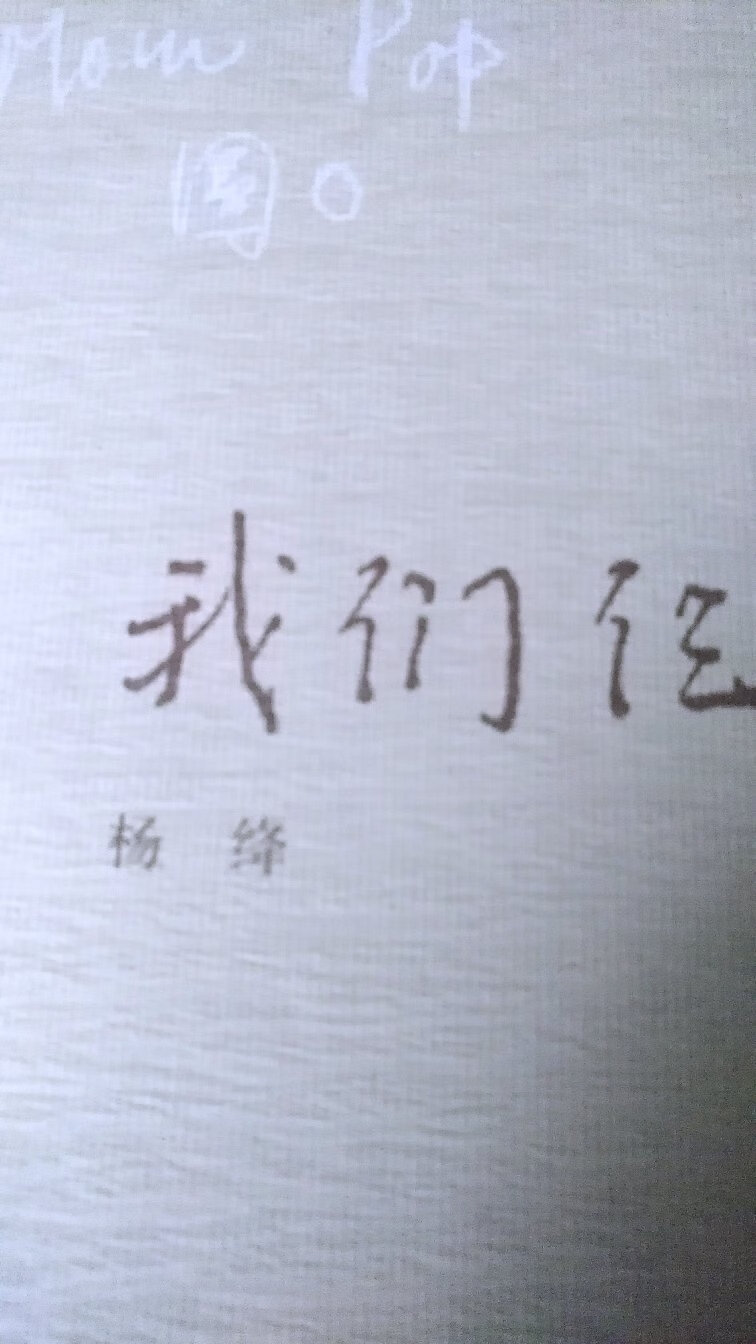 Mom Pop
圆〇
我们仨
杨 绛